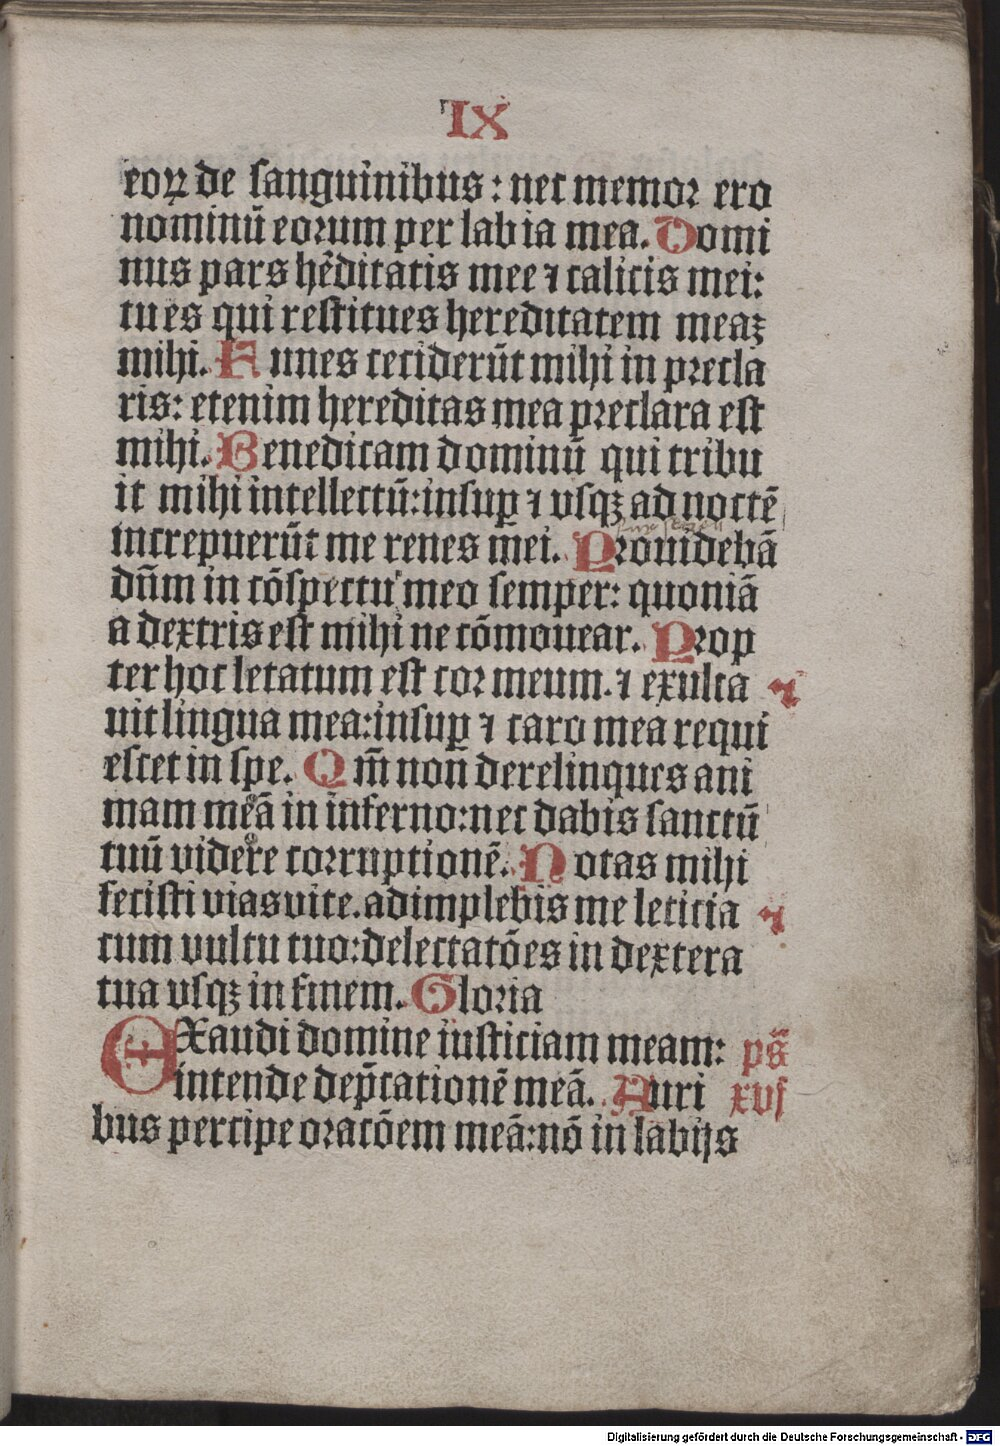 IX
eoꝝ de sanguinibus: nec memor ero
nominū eorum per labia mea. Domi
nus pars hēditatis mee ⁊ calicis mei:
tu es qui restitues hereditatem meaꝫ
mihi. Funes ceciderūt mihi in precla
ris: etenim hereditas mea preclara est
mihi. Benedicam dominū qui tribu
it mihi intellectū: insuꝑ ⁊ vsqꝫ ad noctē
increpuerūt me renes mei. Prouidebā
dūm in cōspectu meo semper: quoniā
a dextris est mihi ne cōmouear. Prop
ter hoc letatum est cor meum. ⁊ exulta ⁊
uit lingua mea: insuꝑ ⁊ caro mea requi
escet in spe. Qm̄ non derelinques ani
mam meā in inferno: nec dabis sanctū
tuū videre corruptionē. Notas mihi
fecisti vias vite. adimplebis me leticia ⁊
cum vultu tuo: delectatōes in dextera
tua vsqꝫ in finem. Gloria
EXaudi domine iusticiam meam: ps̄
intende dep̄cationē meā. Auri xvi
bus percipe oratōem meā: nō in labijs
Digitalisierung gefördert durch die Deutsche Forschungsgemeinschaft - DFG